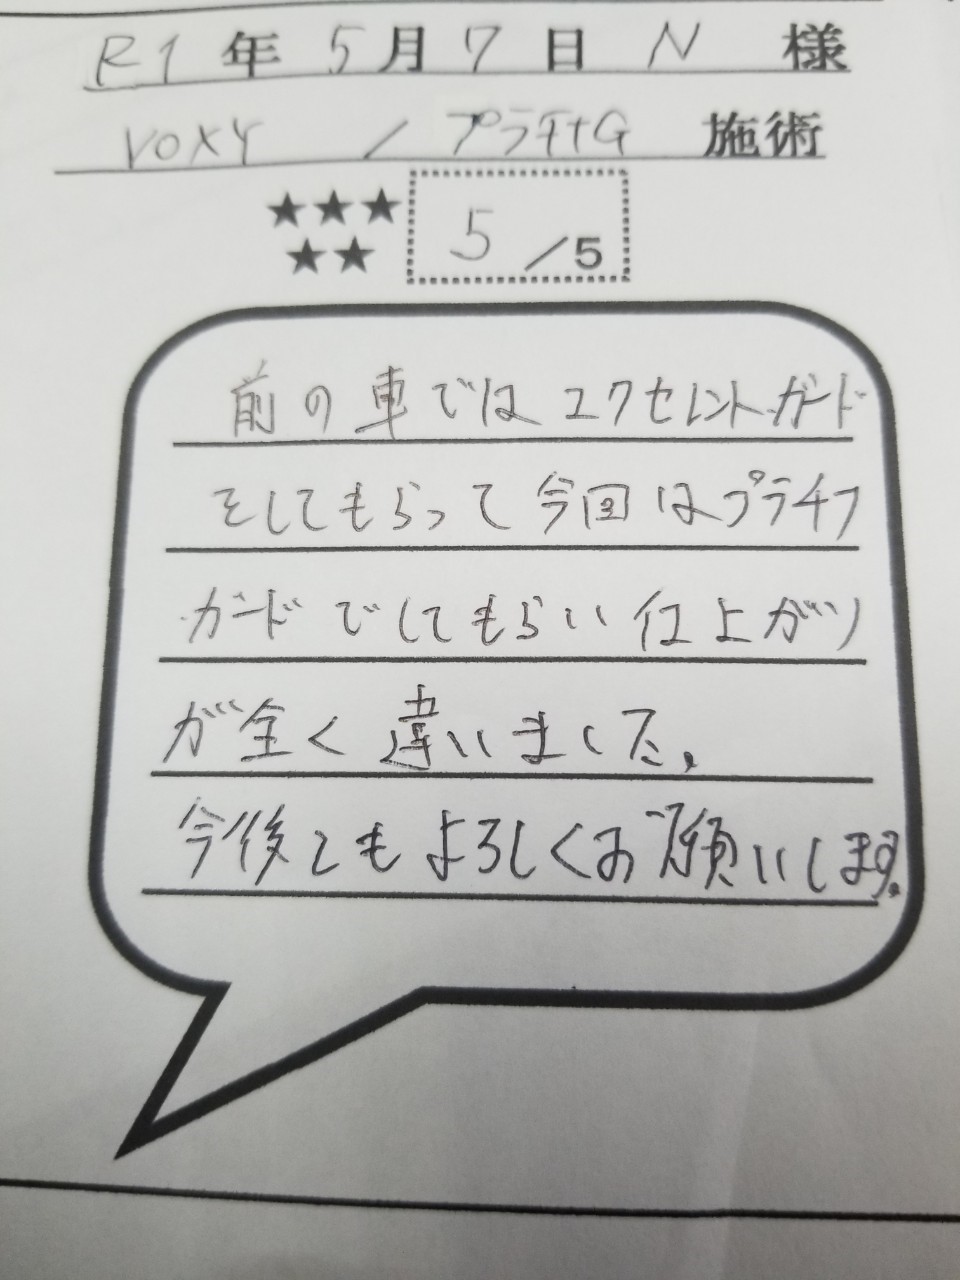 R1年5月7日 N 様
VOXY / プラチナG 施術
★★★
★★
5/5
前の車ではエクセレントガード
をしてもらって今回はプラチナ
ガードでしてもらい仕上がり
が全く違いました。
今後ともよろしくお願いします。